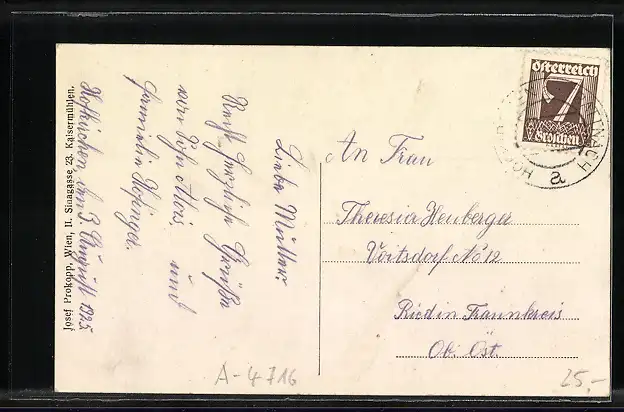 Josef Prokopp, Wien, II. Sinagasse 23, Kaisermühlen.
Hofkirchen, den 3. August 1925
Liebe Mutter!
Recht herzliche Grüße
von Sohn Alois und
Familie
An Frau
Theresia Heuberger
Voitsdorf No 12
Ried in Traunkreis
Ob. Öst.
Österreich
7
Groschen
a
A-4716
25,-